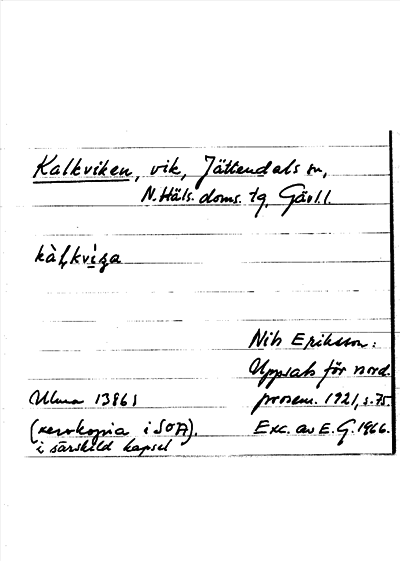 Kalkviken, vik, Jättendals sn,
N. Häls. doms. tg, Gävl. l.
kàḷkvìga
Nils Eriksson:
Uppsats för nord.
Ulma 1386 s prosem. 1921, s. 75.
(xerokopia i SOA). Exc. av E. G. 1966.
i särskild kapsel